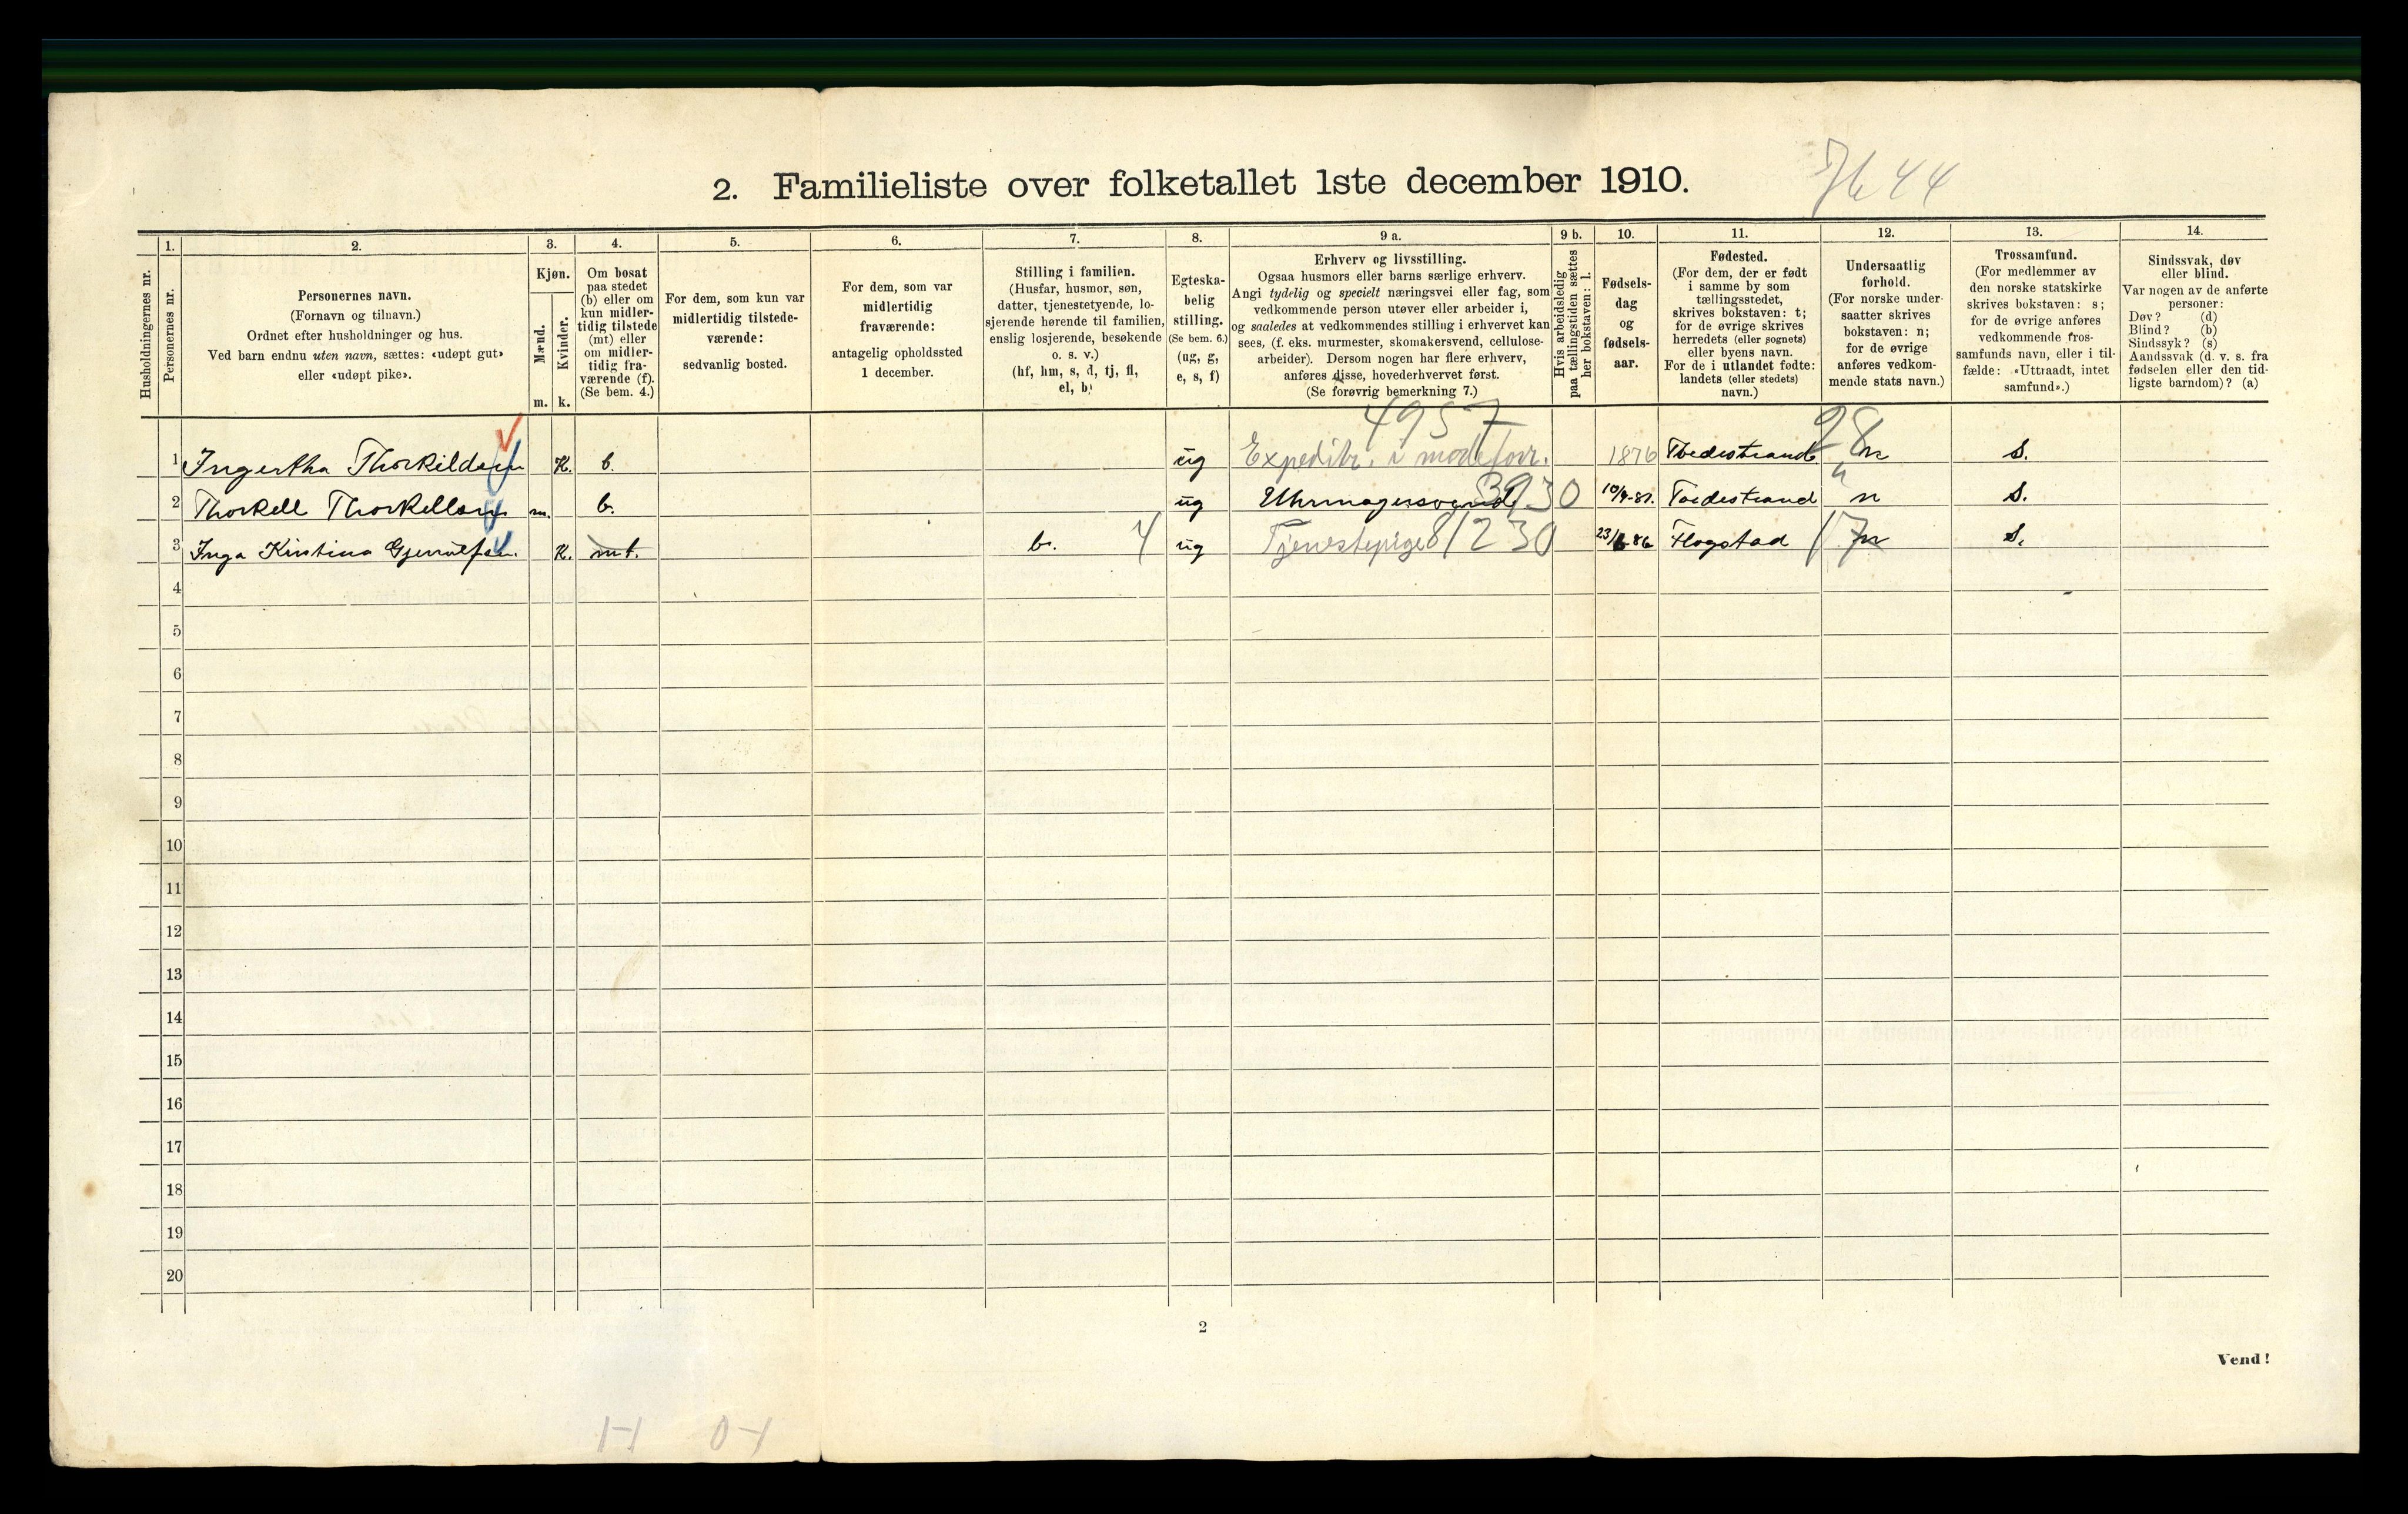 2. Familieliste over folketallet 1ste december 1910.
7644
Husholdningernes nr.
1.
Personernes nr.
2.
Personernes navn.
(Fornavn og tilnavn.)
Ordnet efter husholdninger og hus.
Ved barn endnu uten navn, sættes: «udøpt gut»
eller «udøpt pike».
3.
Kjøn.
Mænd.
Kvinder.
m. k.
4.
Om bosat
paa stedet
(b) eller om
kun midler-
tidig tilstede
(mt) eller
om midler-
tidig fra-
værende (f).
(Se bem. 4.)
5.
For dem, som kun var
midlertidig tilstede-
værende:
sedvanlig bosted.
6.
For dem, som var
midlertidig
fraværende:
antagelig opholdssted
1 december.
7.
Stilling i familien.
(Husfar, husmor, søn,
datter, tjenestetyende, lo-
sjerende hørende til familien,
enslig losjerende, besøkende
o. s. v.)
(hf, hm, s, d, tj, fl,
el, b)
8.
Egteska-
belig
stilling.
(Se bem. 6.)
(ug, g,
e, s, f)
9 a.
Erhverv og livsstilling.
Ogsaa husmors eller barns særlige erhverv.
Angi tydelig og specielt næringsvei eller fag, som
vedkommende person utøver eller arbeider i,
og saaledes at vedkommendes stilling i erhvervet kan
sees, (f. eks. murmester, skomakersvend, cellulose-
arbeider). Dersom nogen har flere erhverv,
anføres disse, hovederhvervet først.
(Se forøvrig bemerkning 7.)
9 b.
Hvis arbeidsledig
paa tællingstiden sættes
her bokstaven: l.
10.
Fødsels-
dag
og
fødsels-
aar.
11.
Fødested.
(For dem, der er født
i samme by som
tællingsstedet,
skrives bokstaven: t;
for de øvrige skrives
herredets (eller sognets)
eller byens navn.
For de i utlandet fødte:
landets (eller stedets)
navn.)
12.
Undersaatlig
forhold.
(For norske under-
saatter skrives
bokstaven: n;
for de øvrige
anføres vedkom-
mende stats navn.)
13.
Trossamfund.
(For medlemmer av
den norske statskirke
skrives bokstaven: s;
for de øvrige anføres
vedkommende tros-
samfunds navn, eller i til-
fælde: «Uttraadt, intet
samfund».)
14.
Sindssvak, døv
eller blind.
Var nogen av de anførte
personer:
Døv? (d)
Blind? (b)
Sindssyk? (s)
Aandssvak (d. v. s. fra
fødselen eller den tid-
ligste barndom)? (a)
4957 28
1 Ingertha Thorkildsen K. b. ug Expeditr. i modeforr. 1876 Tvedestrand n s.
2 Thorkell Thorkellsen m. b. ug Uhrmagersvend 3930 10/9-81. Tvedestrand n s.
3 Inga Kristina K. mt. b. 4 ug Tjenestepige 81230 86 17 n s.
4
5
6
7
8
9
10
11
12
13
14
15
16
17
18
19
20
2
Vend!